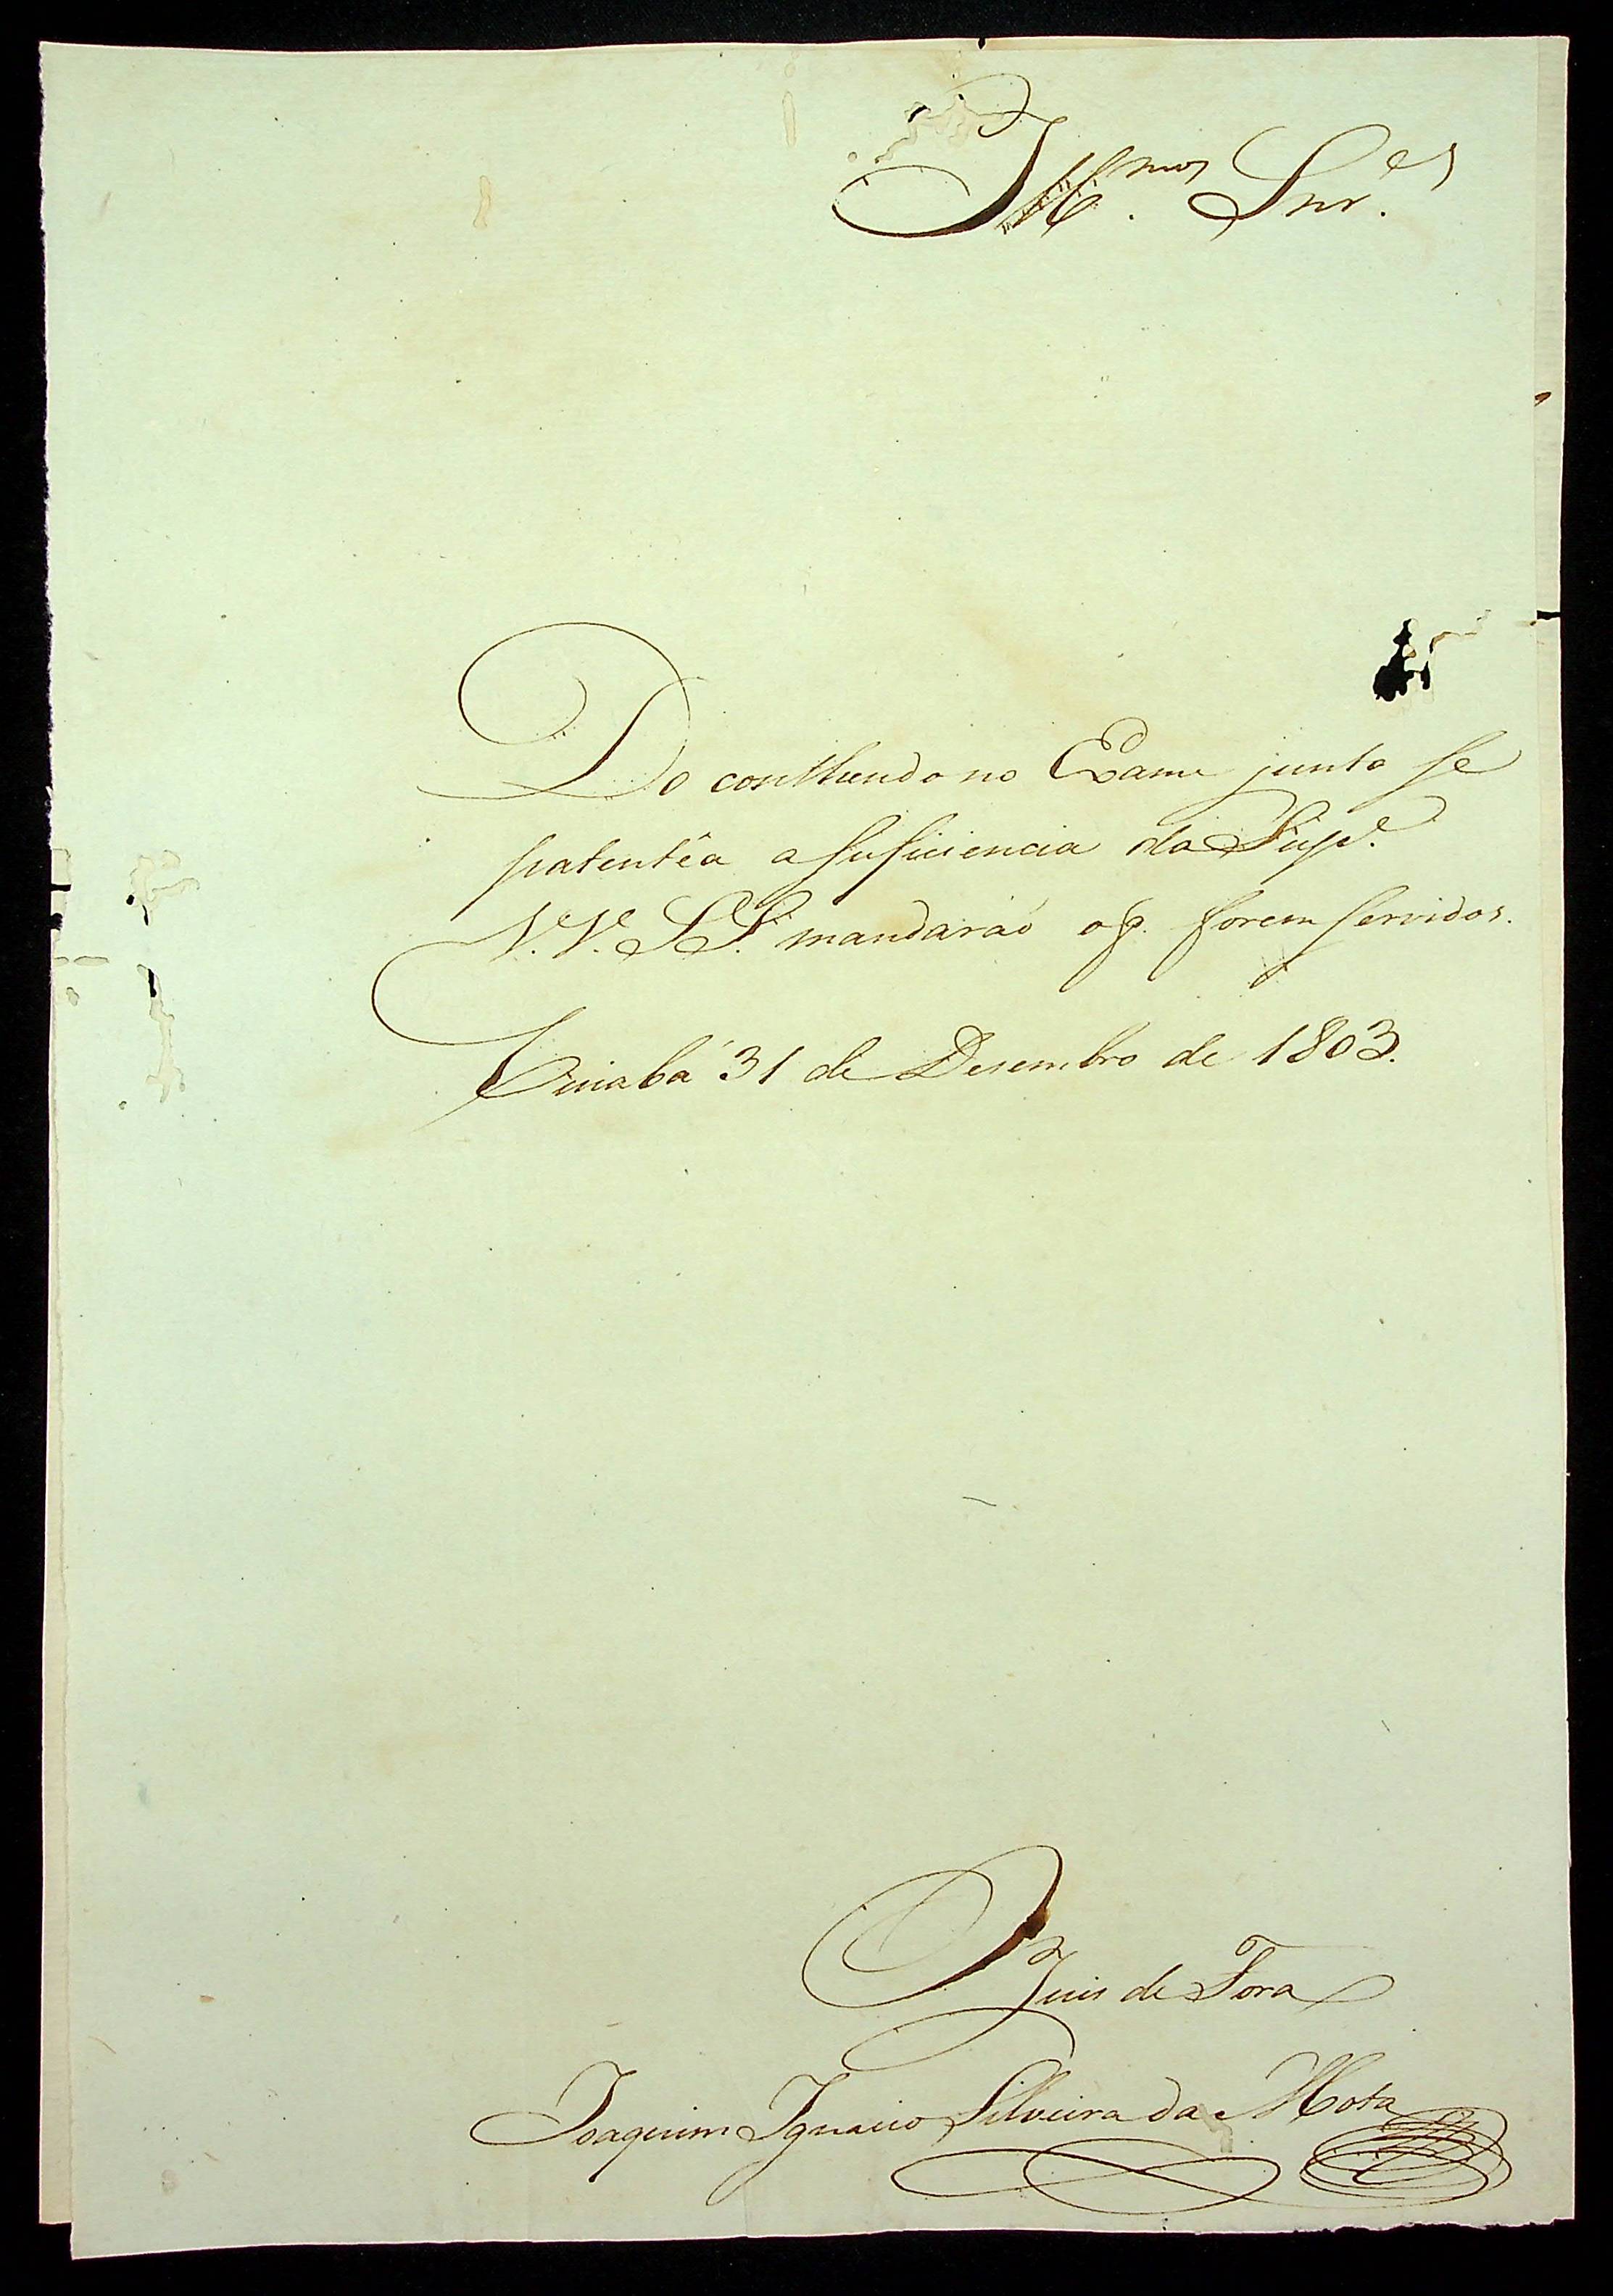 Ill.mos Snr.es
Do conthendo no Exame junto se
patentêa a suficiencia do Sup.e
V.V. S.S. mandaráõ o q. forem servidos.
Cuiabá 31 de Desembro de 1803.
O Juis de Fora
Joaquim Ignacio Silveira da Mota